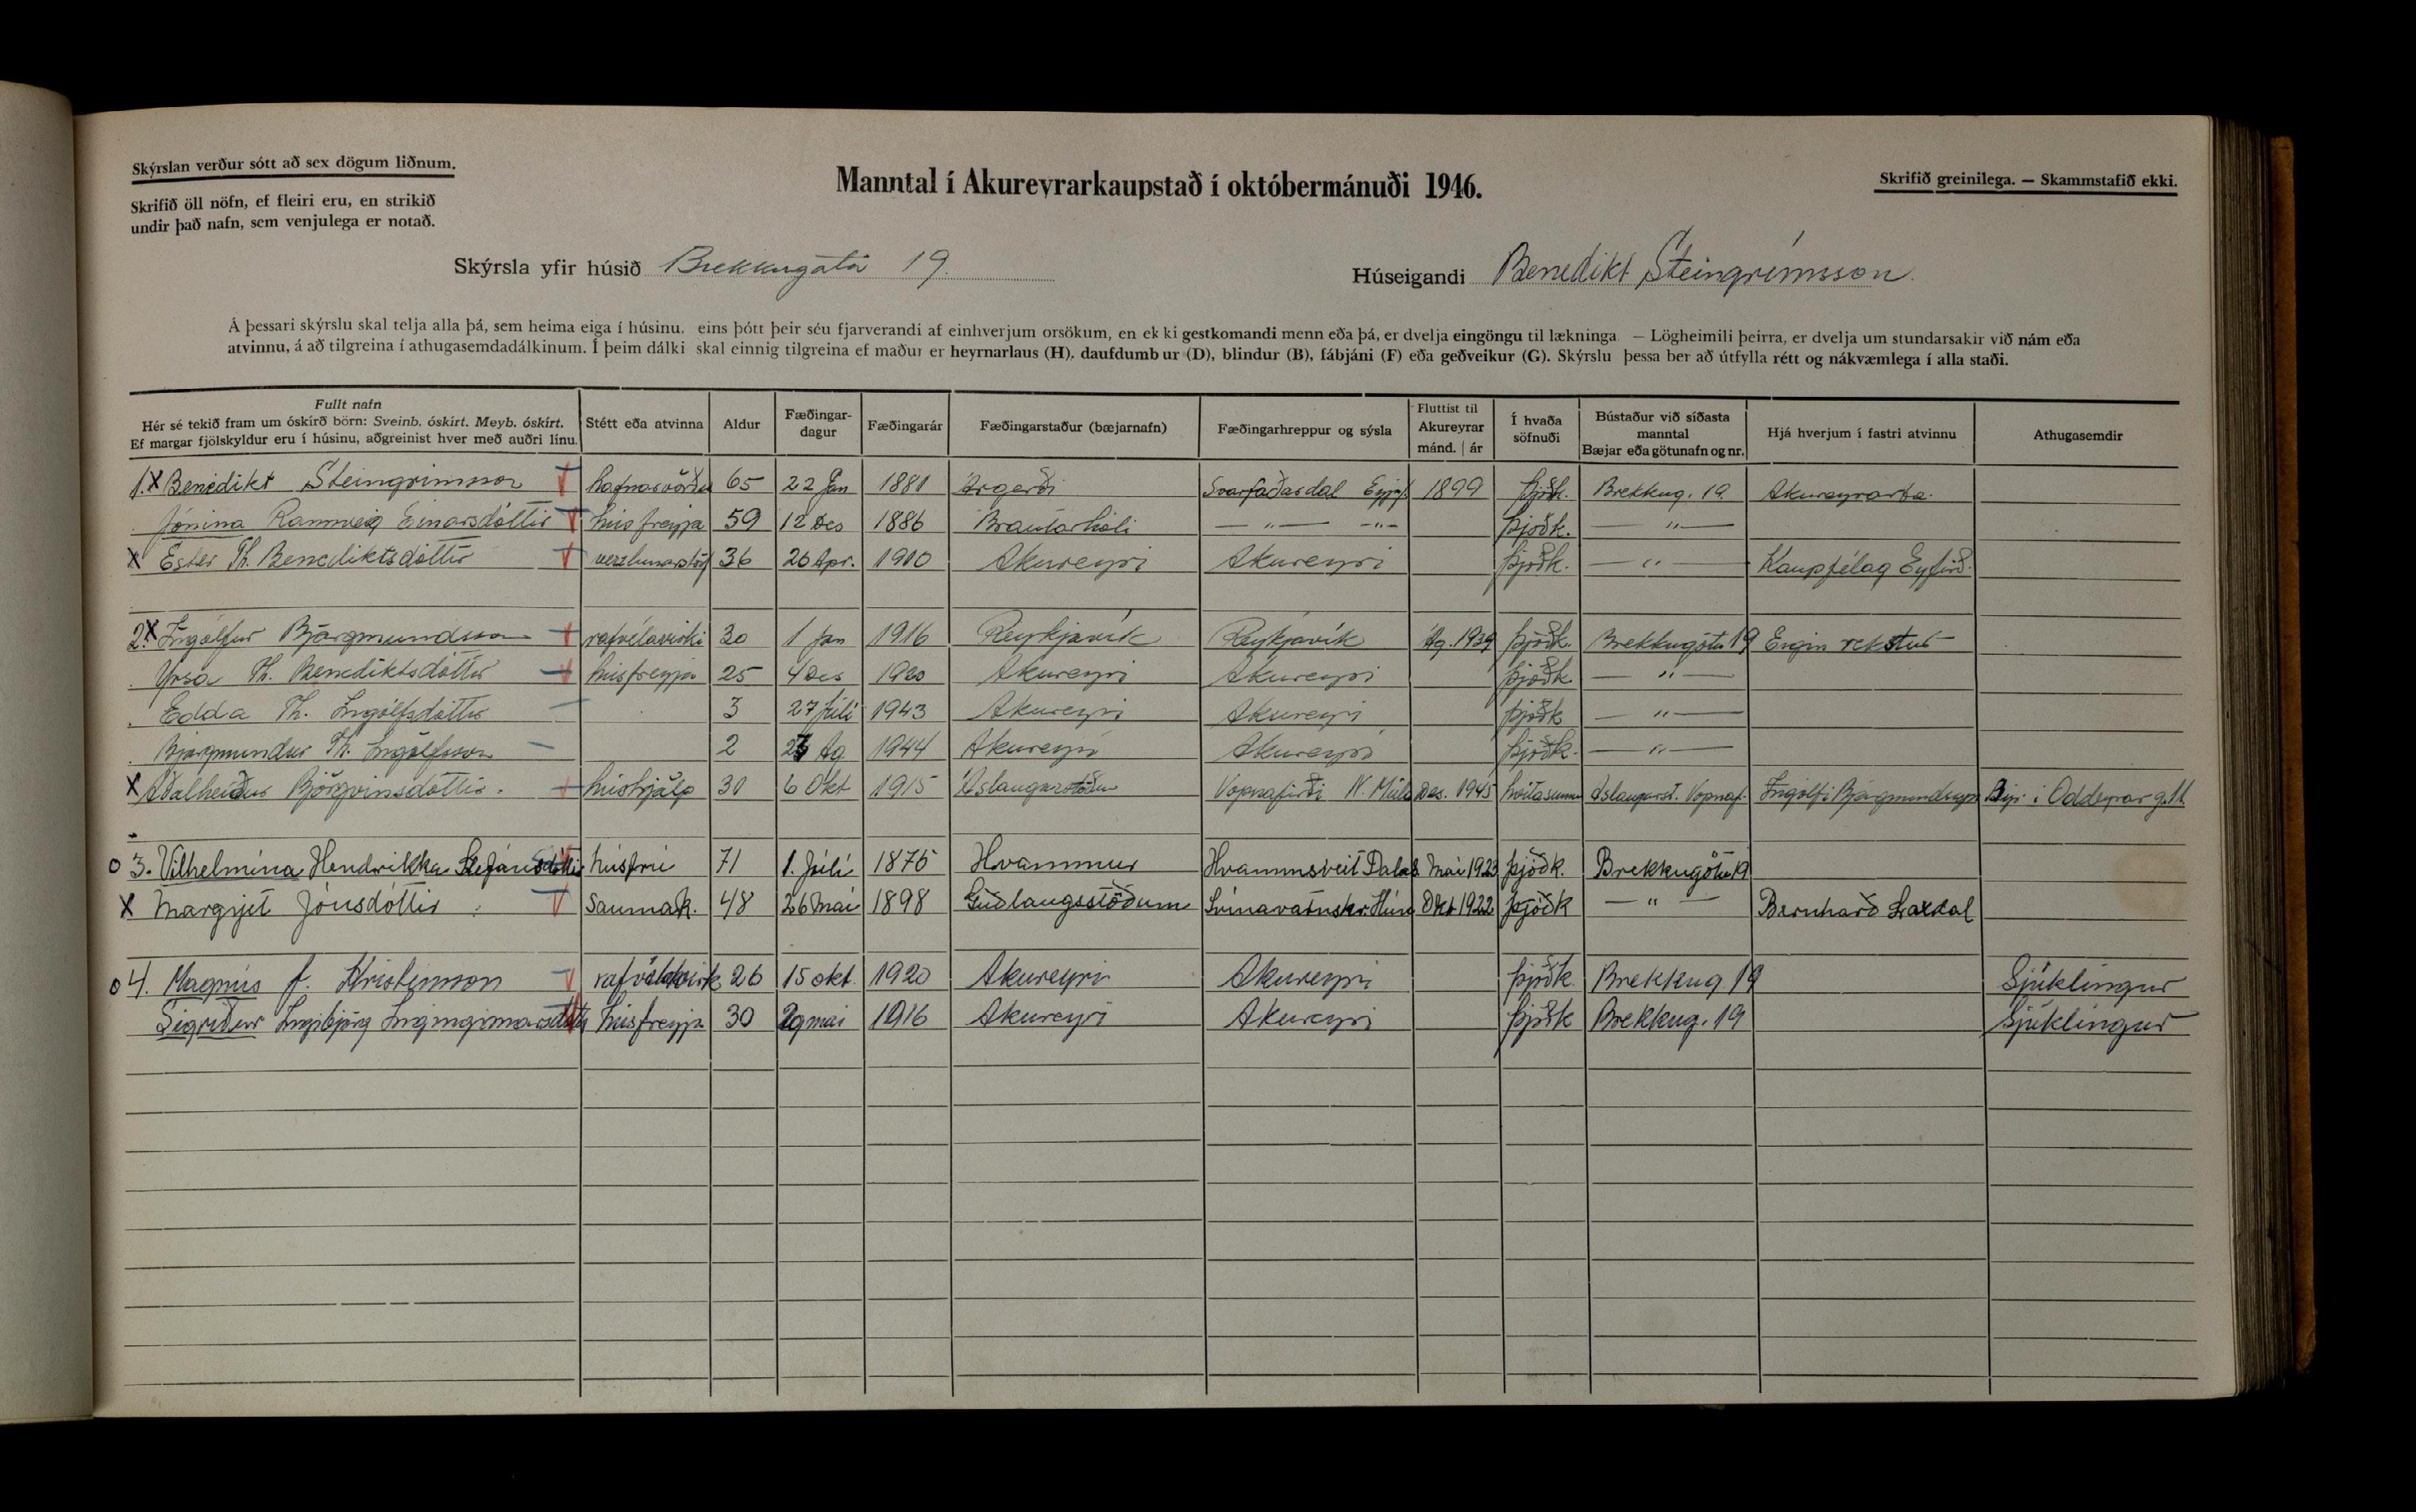 Skýrslan verður sótt að sex dögum liðnum.
Manntal í Akureyrarkaupstað í októbermánuði 1946.
Skrifið greinilega. — Skammstafið ekki.
Skrifið öll nöfn, ef fleiri eru, en strikið
undir það nafn, sem venjulega er notað.
Skýrsla yfir húsið Brekkugata 19.
Húseigandi Benedikt Steingrímsson.
Á þessari skýrslu skal telja alla þá, sem heima eiga í húsinu, eins þótt þeir séu fjarverandi af einhverjum orsökum, en ekki gestkomandi menn eða þá, er dvelja eingöngu til lækninga — Lögheimili þeirra, er dvelja um stundarsakir við nám eða
atvinnu, á að tilgreina í athugasemdadálkinum. Í þeim dálki skal einnig tilgreina ef maður er heyrnarlaus (H), daufdumbur (D), blindur (B), fábjáni (F) eða geðveikur (G). Skýrslu þessa ber að útfylla rétt og nákvæmlega í alla staði.
Fullt nafn
Hér sé tekið fram um óskírð börn: Sveinb. óskírt. Meyb. óskírt.
Ef margar fjölskyldur eru í húsinu, aðgreinist hver með auðri línu.
Stétt eða atvinna
Aldur
Fæðingar-
dagur
Fæðingarár
Fæðingarstaður (bæjarnafn)
Fæðingarhreppur og sýsla
Fluttist til
Akureyrar
mánd. | ár
Í hvaða
söfnuði
Bústaður við síðasta
manntal
Bæjar eða götunafn og nr.
Hjá hverjum í fastri atvinnu
Athugasemdir
1. x Benedikt Steingrimsson hafnarvörður 65 22 Jan 1881 Árgerði Svarfaðardal Eyjaf. 1899 þjóðk. Brekkug. 19. Akureyrarbæ.
Jónína Rannveig Einarsdóttir húsfreyja 59 12 Des 1886 Brautarhóli — " — — " — þjóðk. — " —
x Ester Th. Benediktsdóttir verzlunarstörf 36 26 Apr. 1910 Akureyri Akureyri þjóðk. — " — Kaupfélag Eyfirð.
2. x Ingólfur Bjargmundsson rafvélavirki 30 1 Jan 1916 Reykjavík Reykjavík Ág. 1939 þjóðk. Brekkugötu 19 Eigin rekstur
Yrsa Th. Benediktsdóttir húsfreyja 25 4 Des 1920 Akureyri Akureyri þjóðk. — " —
Edda Th. Ingólfsdóttir 3 27 Júlí 1943 Akureyri Akureyri þjóðk — " —
Bjargmundur Th. Ingólfsson 2 Ág. 1944 Akureyri Akureyri þjóðk. — " —
x Aðalheiður Björgvinsdóttir. húshjálp 30 6 Okt 1915 Áslaugarstöðum Vopnafirði N. Múla Des. 1945 Áslaugarst. Vopnaf. Ingólfi Bjargmundssyni Býr í Oddeyrarg.
o 3. Vilhelmína Hendrikka Stefánsdóttir húsfrú 71 1. Júlí 1875 Hvammur Hvammsveit Dalas Mai 1923 þjóðk. Brekkugötu 19
x Margrjet Jónsdóttir saumak. 48 26 Mai 1898 Guðlaugsstöðum Svínavatnshr. Hún Okt 1922 þjóðk — " — Bernharð Laxdal
o 4. Magnús J. Kristinsson rafvélavirk 26 15 okt. 1920 Akureyri Akureyri þjóðk. Brekkug. 19 Sjúklingur
Sigríður Ingibjörg húsfreyja 30 29 mai 1916 Akureyri Akureyri þjóðk Brekkug. 19 Sjúklingur